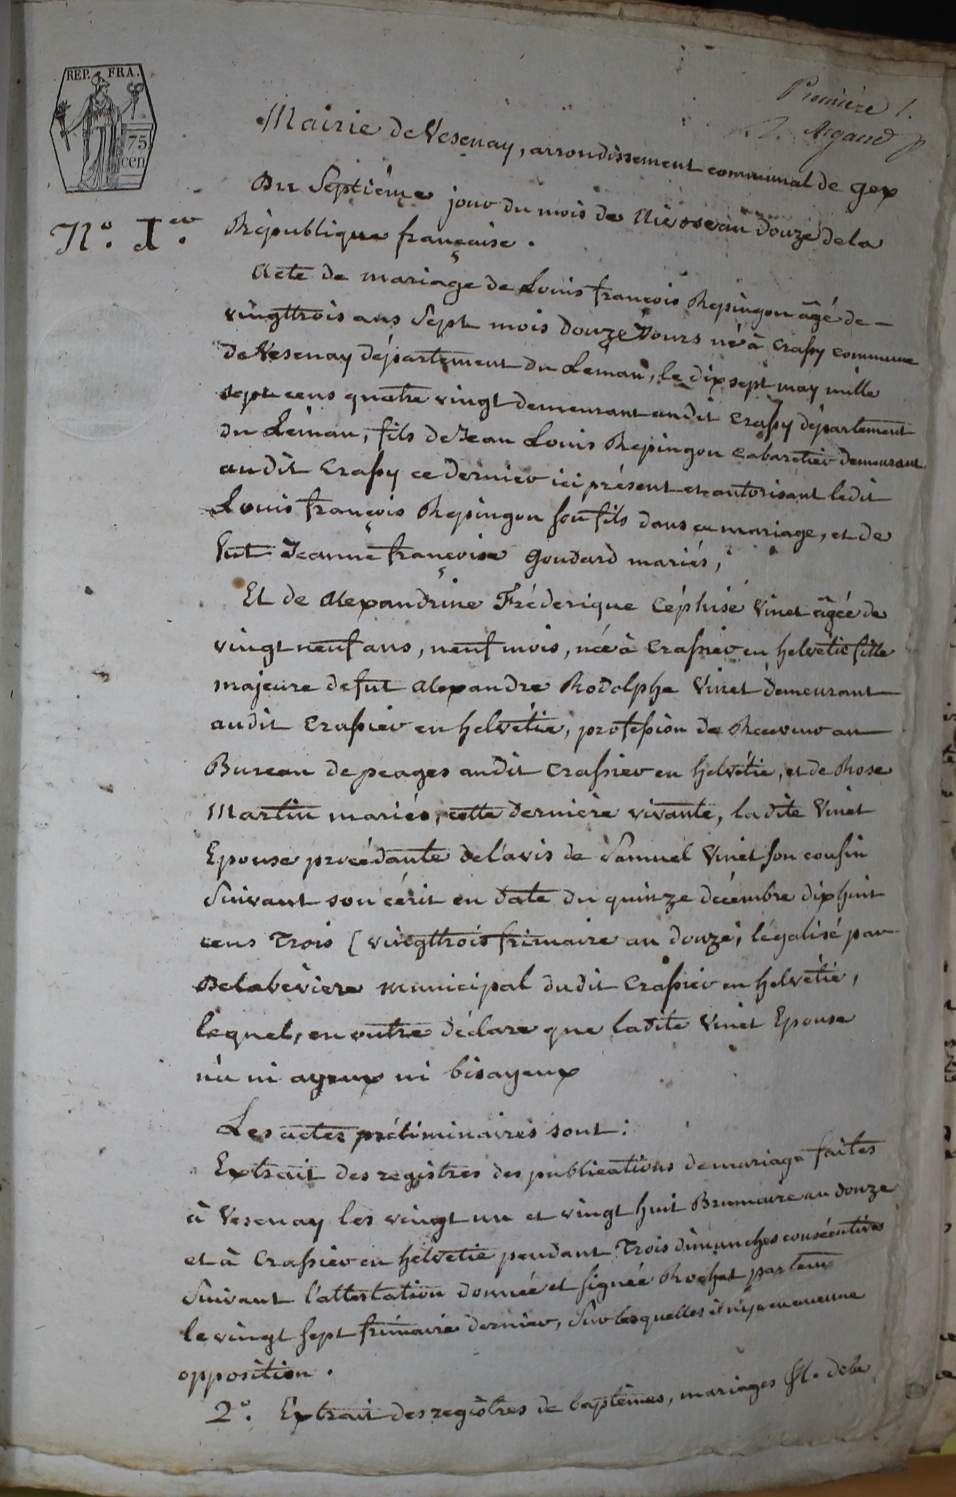 REP. FRA.
75
cen
Première 1.
Rigaud
Mairie de Vesenay, arrondissement communal de gex
Du Septième jour du mois de Nivose an Douze de la
N.o I.er
République française.
Acte de mariage de Louis françois Repingon âgé de –
vingttrois ans Sept mois Douze Jours né à Crassy commune
de Vesenay département du Leman, le dix sept may mille
sept cens quatre vingt demeurant audit Crassy département
du Léman, fils de Jean Louis Repingon cabaretier demeurant
audit Crassy ce dernier ici présent et autorisant ledit
Louis françois Repingon son fils dans ce mariage, et de
fut Jeanne françoise Goudard mariés,
Et de Alexandrine Fréderique Céphise Vinet âgée de
vingt neuf ans, neuf mois, née à Crassier en helvétie fille
majeure de fut Alexandre Rodolphe Vinet demeurant
audit Crassier en helvétie, profession de Receveur au
Bureau de peages audit Crassier en helvétie, et de Rose
Martin mariés, cette dernière vivante, la dite Vinet
Epouse procédante de l'avis de Samuel Vinet son cousin
Suivant son écrit en date du quinze décembre dix huit
cens trois [vingttrois frimaire an douze, légalisé par
Delabévière municipal dudit Crassier en helvétie,
lequel, en outre déclare que ladite Vinet Epouse
n'a ni ayeux ni bisayeux
Les actes préliminaires sont:
Extrait des registres des publications de mariage faites
à Vesenay les vingt un et vingt huit Brumaire an douze
et à Crassier en helvetie pendant Trois dimanches consécutives
Suivant l'attestation donnée et signée Rochat pasteur
le vingt sept frimaire dernier, Sur lesquelles il n'y a eu aucune
opposition.
2.o Extrait des registres de baptêmes, mariages &c. de la